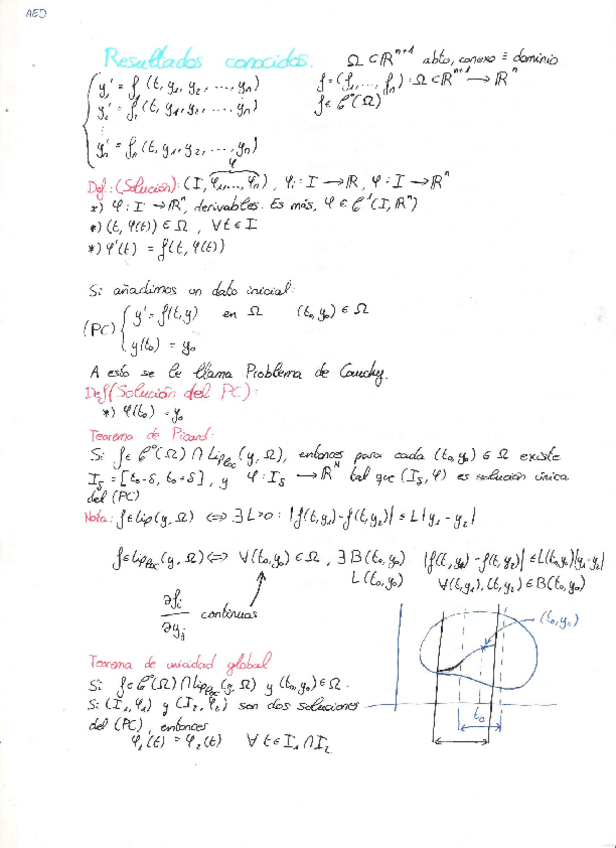 AED
Resultados conocidos.
Ω ⊂ ℝⁿ⁺¹ abto, conexo ≡ dominio
y₁' = f₁(t, y₁, y₂, ..., yₙ)
f = (f₁, ..., fₙ) : Ω ⊂ ℝⁿ⁺¹ → ℝⁿ
y₂' = f₂(t, y₁, y₂, ..., yₙ)
f ∈ C⁰(Ω)
⋮
yₙ' = fₙ(t, y₁, y₂, ..., yₙ)
φ
Def.: (Solución): (I, φ₁, ..., φₙ), φᵢ : I → ℝ, φ : I → ℝⁿ
*) φ : I → ℝⁿ, derivables. Es más, φ ∈ C¹(I, ℝⁿ)
*) (t, φ(t)) ∈ Ω, ∀t ∈ I
*) φ'(t) = f(t, φ(t))
Si añadimos un dato inicial:
(PC) { y' = f(t, y) en Ω (t₀, y₀) ∈ Ω
y(t₀) = y₀
A esto se le llama Problema de Cauchy.
Def (Solución del PC):
*) φ(t₀) = y₀
Teorema de Picard:
Si f ∈ C⁰(Ω) ∩ Lip_loc(y, Ω), entonces para cada (t₀, y₀) ∈ Ω existe
I_δ = [t₀-δ, t₀+δ], y φ : I_δ → ℝᴺ tal que (I_δ, φ) es solución única
del (PC)
Nota: f ∈ Lip(y, Ω) ⟺ ∃ L>0 : |f(t, y₁) - f(t, y₂)| ≤ L|y₁ - y₂|
f ∈ Lip_loc(y, Ω) ⟺ ∀(t₀, y₀) ∈ Ω, ∃ B(t₀, y₀) |f(t, y₁) - f(t, y₂)| ≤ L(t₀, y₀)|y₁ - y₂|
L(t₀, y₀) ∀(t, y₁), (t, y₂) ∈ B(t₀, y₀)
∂fᵢ/∂yⱼ continuas
(t₀, y₀)
t₀
Teorema de unicidad global
Si f ∈ C⁰(Ω) ∩ Lip_loc(y, Ω) y (t₀, y₀) ∈ Ω.
Si (I₁, φ₁) y (I₂, φ₂) son dos soluciones
del (PC), entonces
φ₁(t) = φ₂(t) ∀ t ∈ I₁ ∩ I₂